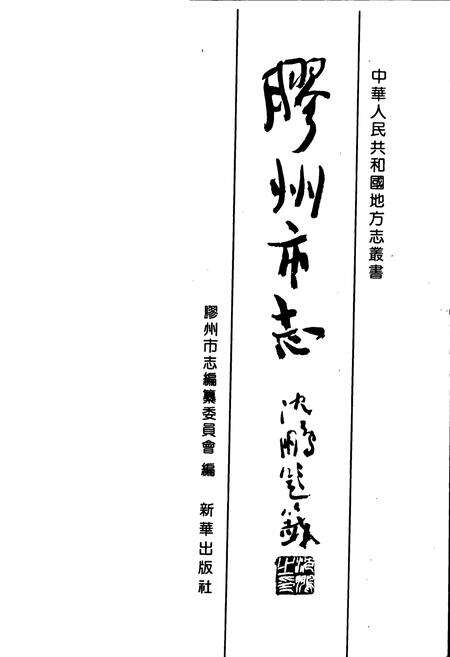 中華人民共和國地方志叢書
膠州市志
沈鵬題籤
膠州市志編纂委員會 編
新華出版社